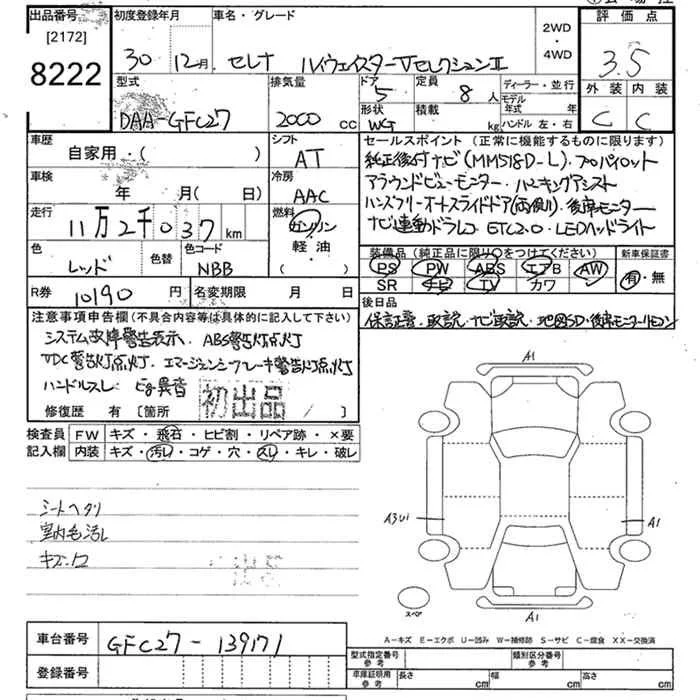 出品番号 初度登録年月 車名・グレード 2WD・4WD 評価点
[2172]
8222
30 12月 セレナ ハイウェイスターVセレクションⅡ 3.5
型式 排気量 ドア 定員 ディーラー・並行 外装 内装
DAA-GFC27 2000 cc 5 8人 モデル年式 年 C C
形状 積載
WG kg ハンドル 左・右
車歴 シフト セールスポイント(正常に機能するものに限ります)
自家用・( ) AT 純正後付ナビ(MM518D-L)、プロパイロット
車検 冷房 アラウンドビューモニター、パーキングアシスト
年 月( 日) AAC ハンズフリーオートスライドドア(両側)、後席モニター
走行 燃料 ナビ連動ドラレコ ETC2.0 LEDヘッドライト
11万2千037km ガソリン・軽油・( )
色 色替 色コード 装備品(純正品に限り○をつけてください) 新車保証書
レッド NBB PS PW ABS エアB AW 有・無
SR ナビ TV カワ
R券 10190円 名変期限 月 日 後日品
保証書、取説、ナビ取説、地図SD、後席モニターリモコン
注意事項申告欄(不具合内容等は具体的に記入して下さい)
システム故障警告表示、ABS警告灯点灯
VDC警告灯点灯、エマージェンシーブレーキ警告灯点灯
ハンドルスレ Eg異音
初出品
修復歴 有 [箇所 / ]
検査員記入欄 FW キズ・飛石・ヒビ割・リペア跡・×要
内装 キズ・汚れ・コゲ・穴・スレ・キレ・破レ
シートヘタリ
室内毛汚し
A1
A3U1
A1
スペア
A1
A-キズ E-エクボ U-凹み W-補修跡 S-サビ C-腐食 XX-交換済
車台番号 GFC27-139171
登録番号
型式指定番号 参考 類別区分番号 参考
車庫証明用 参考 長さ cm 幅 cm 高さ cm